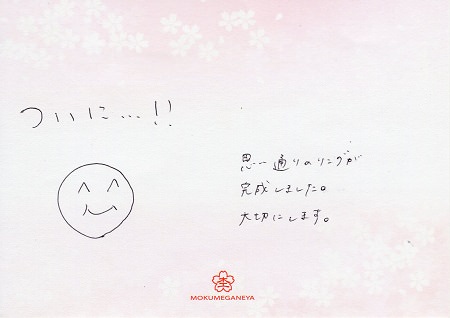 ついに…!!
思い通りのリングが
完成しました。
大切にします。
MOKUMEGANEYA